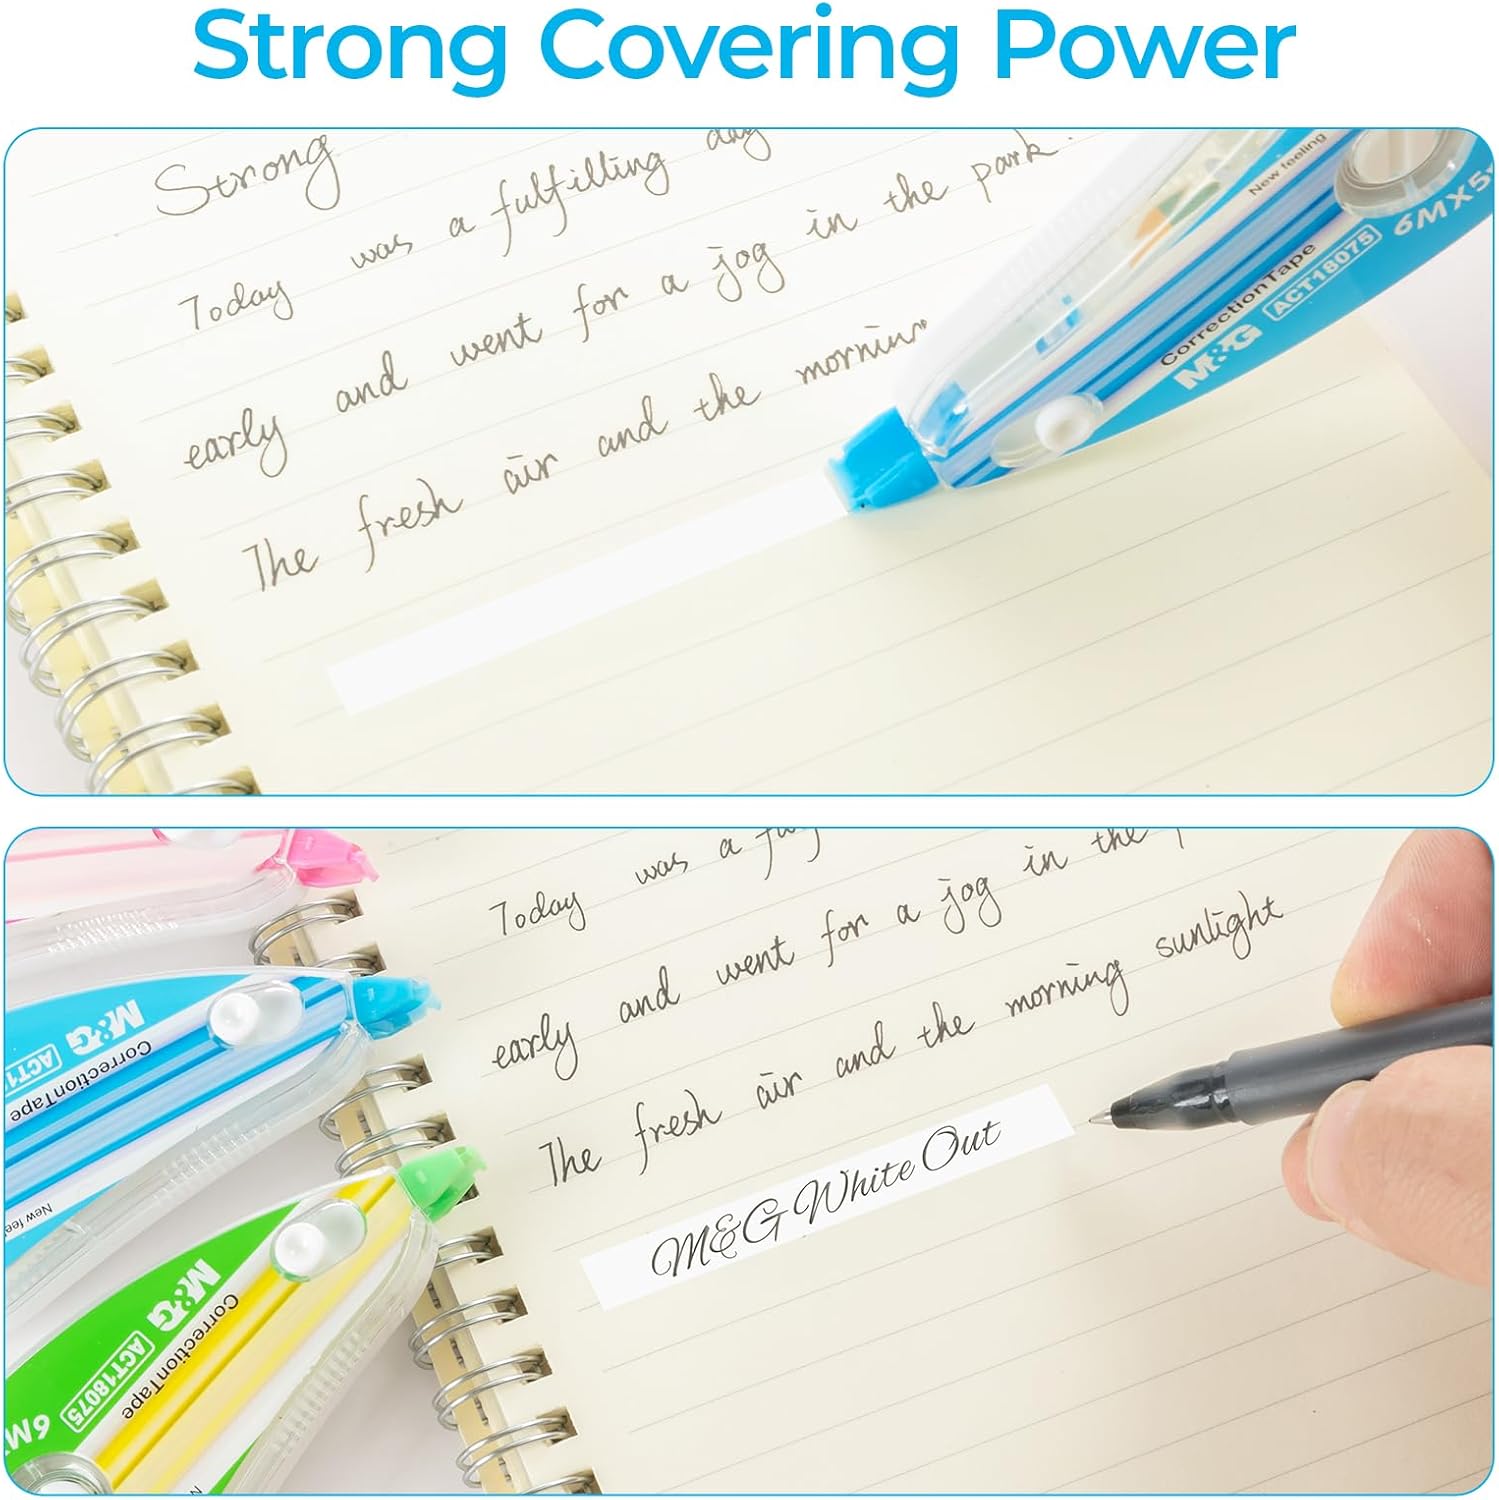 Strong Covering Power
Strong
Today was a fulfilling day
early and went for a jog in the park.
The fresh air and the morning
New feeling
CorrectionTape
M&G ACT18075 6M×5
Today was a
early and went for a jog in the
The fresh air and the morning sunlight
M&G White Out
M&G
CorrectionTape
New
M&G
CorrectionTape
ACT18075
6M